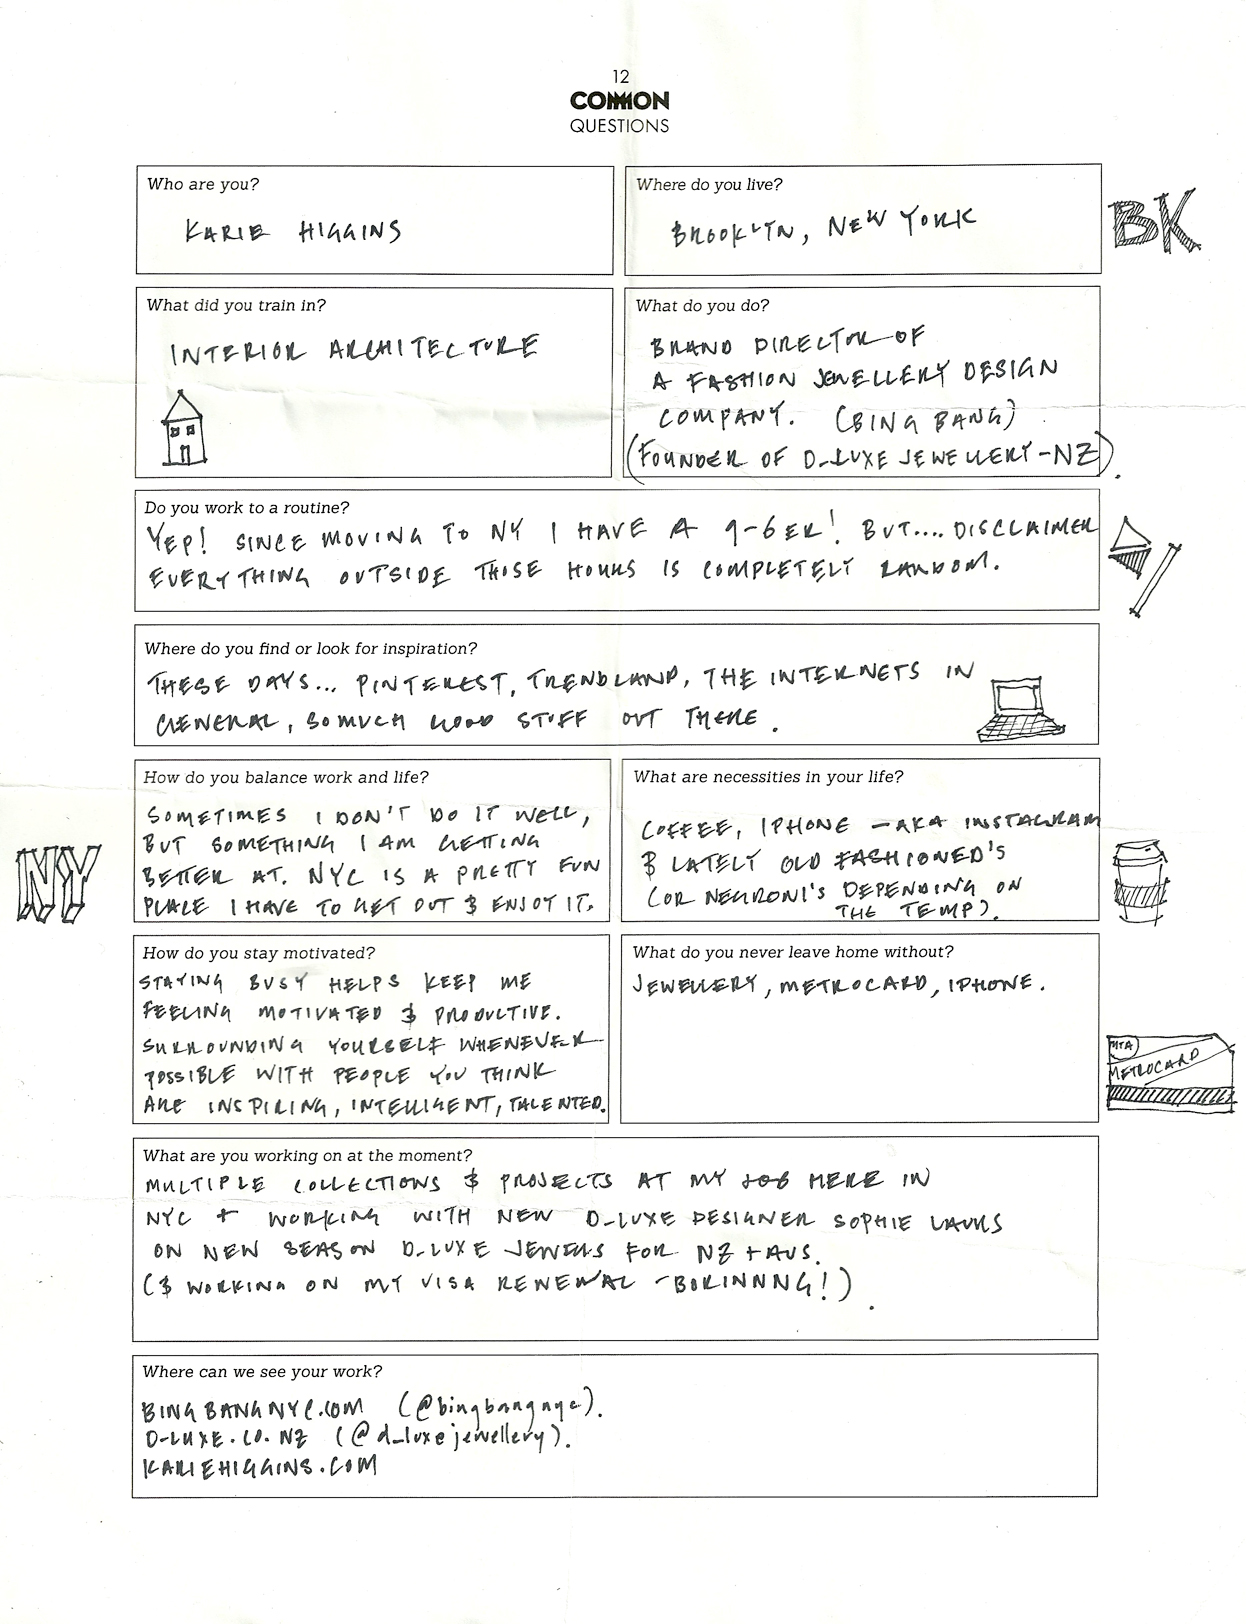 12
COMMON
QUESTIONS
Who are you?
KARIE HIGGINS
Where do you live?
BROOKLYN, NEW YORK
BK
What did you train in?
INTERIOR ARCHITECTURE
What do you do?
BRAND DIRECTOR OF
A FASHION JEWELLERY DESIGN
COMPANY. (BING BANG)
(FOUNDER OF D-LUXE JEWELLERY-NZ).
Do you work to a routine?
YEP! SINCE MOVING TO NY I HAVE A 9-6ER! BUT.... DISCLAIMER
EVERYTHING OUTSIDE THOSE HOURS IS COMPLETELY RANDOM.
Where do you find or look for inspiration?
THESE DAYS... PINTEREST, TRENDLAND, THE INTERNETS IN
GENERAL, SO MUCH GOOD STUFF OUT THERE.
How do you balance work and life?
SOMETIMES I DON'T DO IT WELL,
BUT SOMETHING I AM GETTING
BETTER AT. NYC IS A PRETTY FUN
PLACE I HAVE TO GET OUT & ENJOY IT.
NY
What are necessities in your life?
COFFEE, IPHONE - AKA INSTAGRAM
& LATELY OLD FASHIONED'S
(OR NEGRONI'S DEPENDING ON
THE TEMP).
How do you stay motivated?
STAYING BUSY HELPS KEEP ME
FEELING MOTIVATED & PRODUCTIVE.
SURROUNDING YOURSELF WHENEVER
POSSIBLE WITH PEOPLE YOU THINK
ARE INSPIRING, INTELLIGENT, TALENTED.
What do you never leave home without?
JEWELLERY, METROCARD, IPHONE.
MTA
METROCARD
What are you working on at the moment?
MULTIPLE COLLECTIONS & PROJECTS AT MY JOB HERE IN
NYC + WORKING WITH NEW D-LUXE DESIGNER SOPHIE
ON NEW SEASON D-LUXE JEWELS FOR NZ + AUS.
(& WORKING ON MY VISA RENEWAL - BORINNNG!).
Where can we see your work?
BINGBANGNYC.COM (@bingbangnyc).
D-LUXE.CO.NZ (@d_luxejewellery).
KARIEHIGGINS.COM